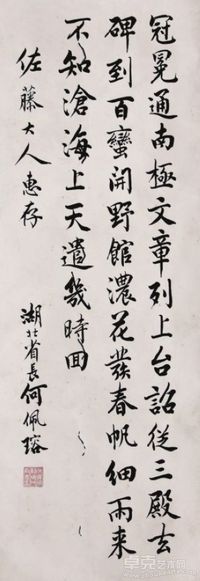 冠冕通南極文章列上台詔從三殿去
碑到百蠻開野館濃花發春帆細雨来
不知滄海上天遣幾時回
佐藤大人惠存
湖北省長何佩瑢
卓克艺术网